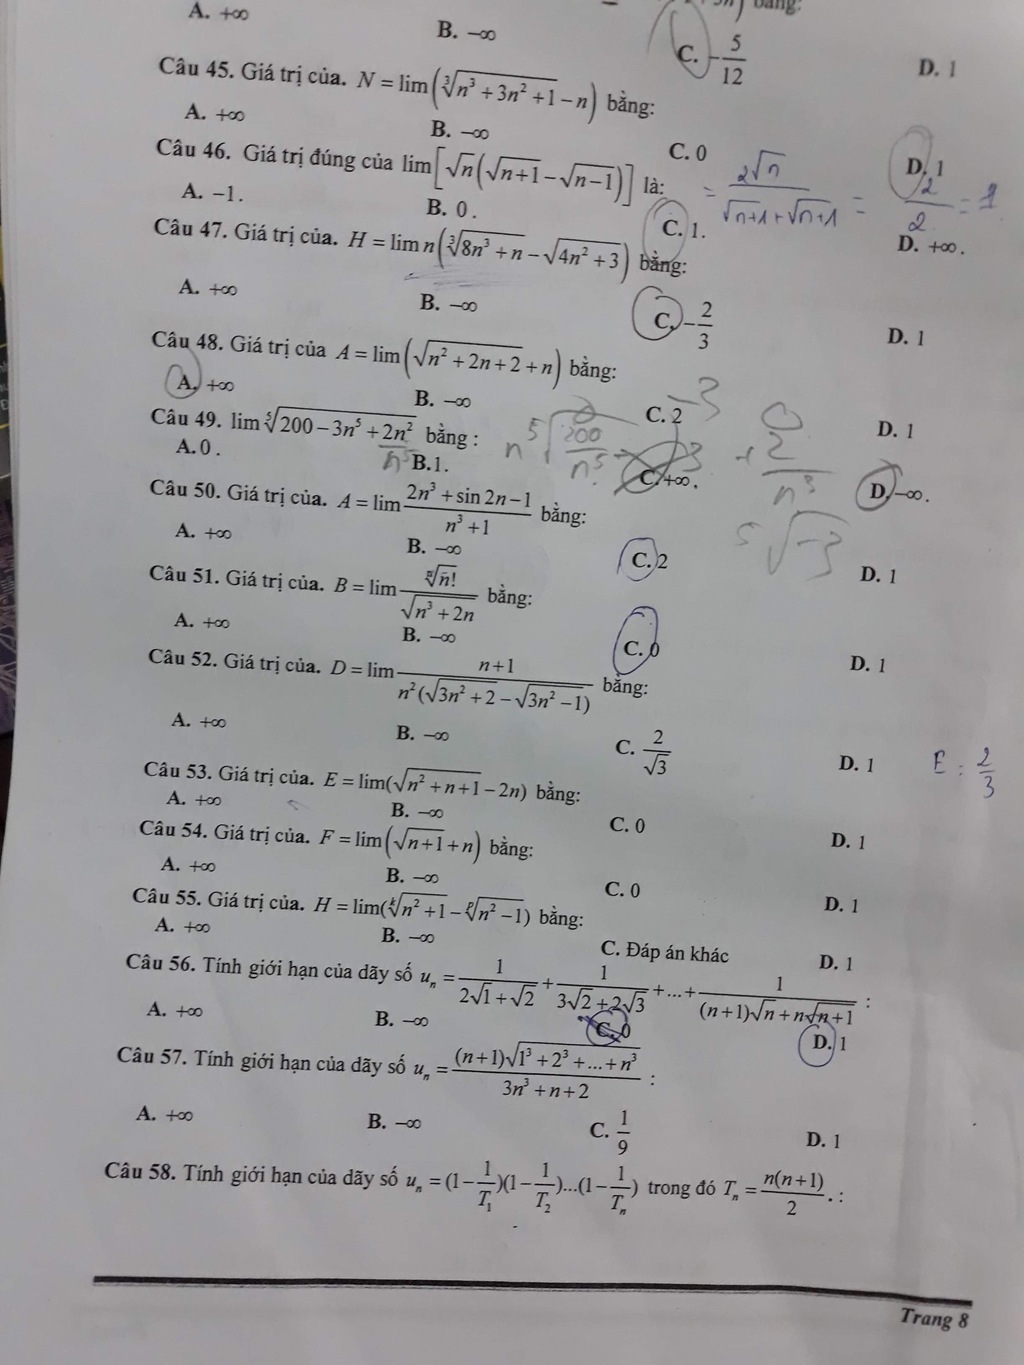 A. +∞ B. −∞ C. −5/12 D. 1
Câu 45. Giá trị của. N = lim(∛(n³ + 3n² + 1) − n) bằng:
A. +∞ B. −∞ C. 0 D. 1
Câu 46. Giá trị đúng của lim[√n(√(n+1) − √(n−1))] là:
= 2√n / (√n+1 + √n+1) = 2/2 = 1
A. −1. B. 0. C. 1. D. +∞.
Câu 47. Giá trị của. H = lim n(∛(8n³ + n) − √(4n² + 3)) bằng:
A. +∞ B. −∞ C. −2/3 D. 1
Câu 48. Giá trị của A = lim(√(n² + 2n + 2) + n) bằng:
A. +∞ B. −∞ C. 2 D. 1
Câu 49. lim ⁵√(200 − 3n⁵ + 2n²) bằng :
A. 0. B. 1. C. +∞. D. −∞.
Câu 50. Giá trị của. A = lim (2n³ + sin 2n − 1)/(n³ + 1) bằng:
A. +∞ B. −∞ C. 2 D. 1
⁵√−3
Câu 51. Giá trị của. B = lim ⁿ√n! / √(n³ + 2n) bằng:
A. +∞ B. −∞ C. 0 D. 1
Câu 52. Giá trị của. D = lim (n+1)/(n²(√(3n² + 2) − √(3n² − 1))) bằng:
A. +∞ B. −∞ C. 2/√3 D. 1
E : 2/3
Câu 53. Giá trị của. E = lim(√(n² + n + 1) − 2n) bằng:
A. +∞ B. −∞ C. 0 D. 1
Câu 54. Giá trị của. F = lim(√(n+1) + n) bằng:
A. +∞ B. −∞ C. 0 D. 1
Câu 55. Giá trị của. H = lim(ᵏ√(n² + 1) − ᵖ√(n² − 1)) bằng:
A. +∞ B. −∞ C. Đáp án khác D. 1
Câu 56. Tính giới hạn của dãy số uₙ = 1/(2√1 + √2) + 1/(3√2 + 2√3) + ... + 1/((n+1)√n + n√(n+1)) :
A. +∞ B. −∞ C. 0 D. 1
Câu 57. Tính giới hạn của dãy số uₙ = (n+1)√(1³ + 2³ + ... + n³) / (3n³ + n + 2) :
A. +∞ B. −∞ C. 1/9 D. 1
Câu 58. Tính giới hạn của dãy số uₙ = (1 − 1/T₁)(1 − 1/T₂)...(1 − 1/Tₙ) trong đó Tₙ = n(n+1)/2 . :
Trang 8